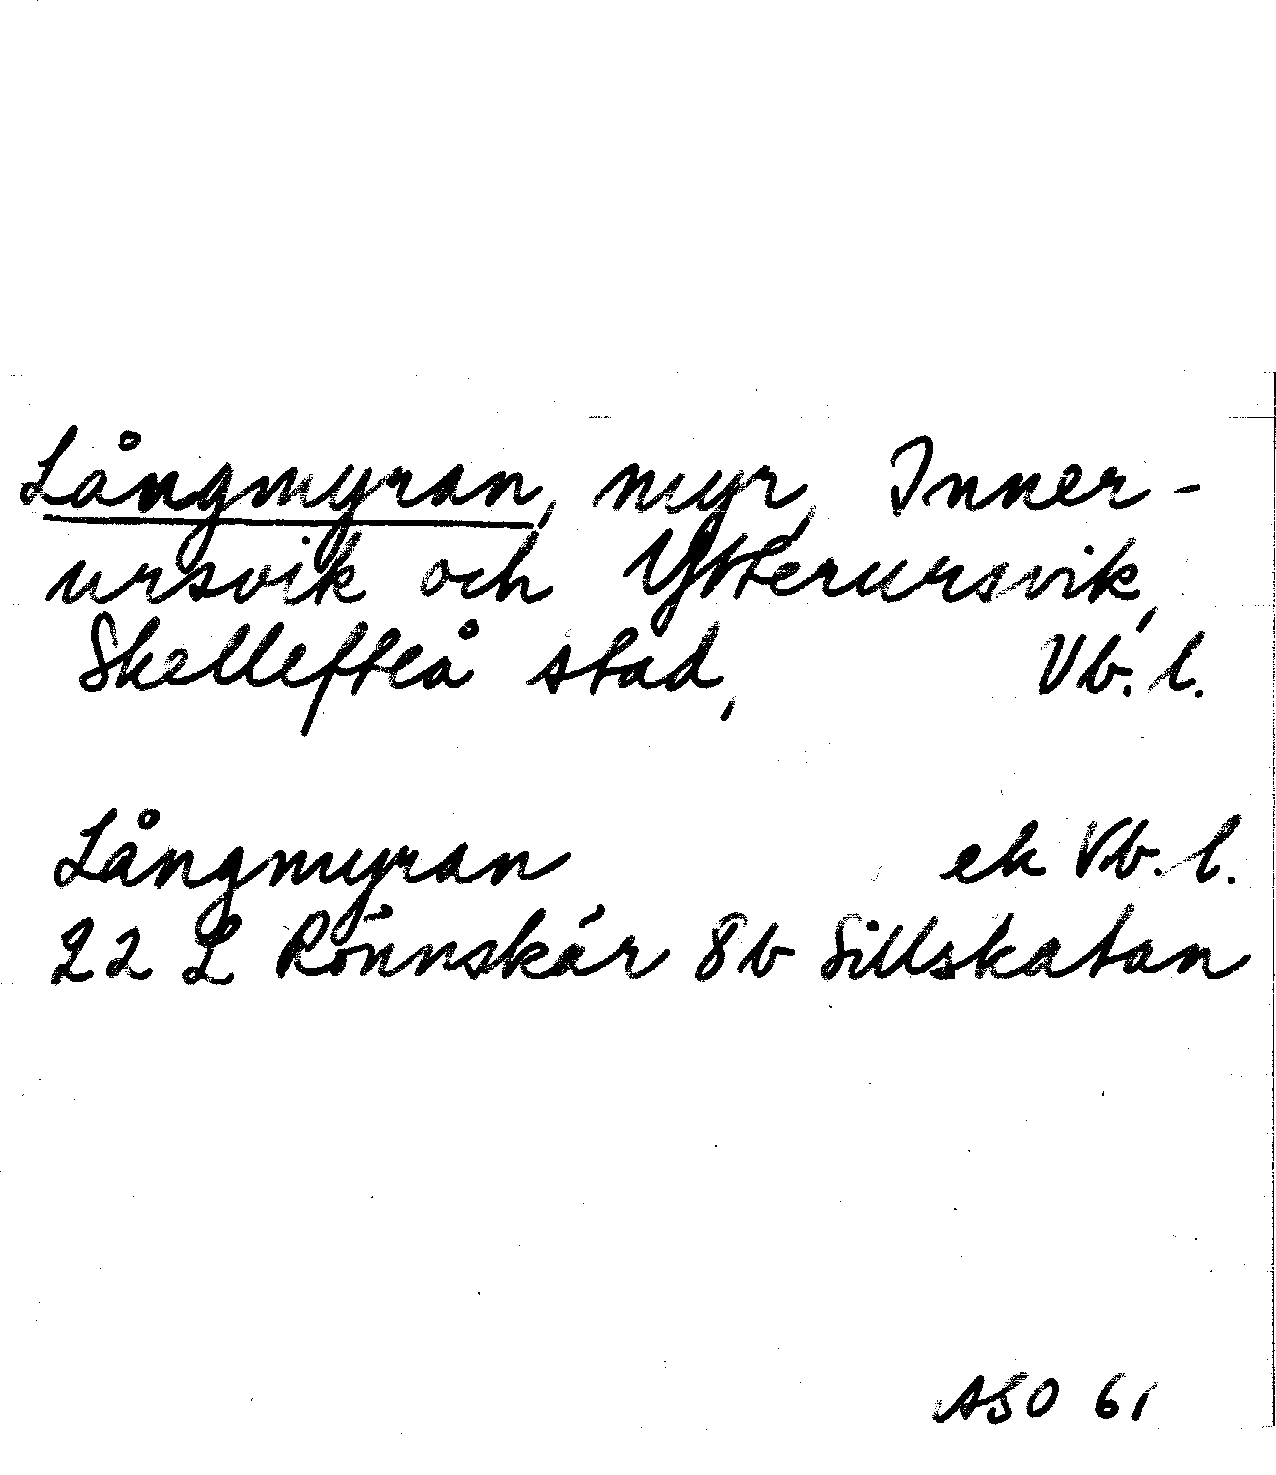 Långmyran, myr, Inner-
ursvik och Ytterursvik,
Skellefteå stad, Vb. l.
Långmyran ek Vb. l.
22 L Rönnskär 8b Sillskatan
ASO 61